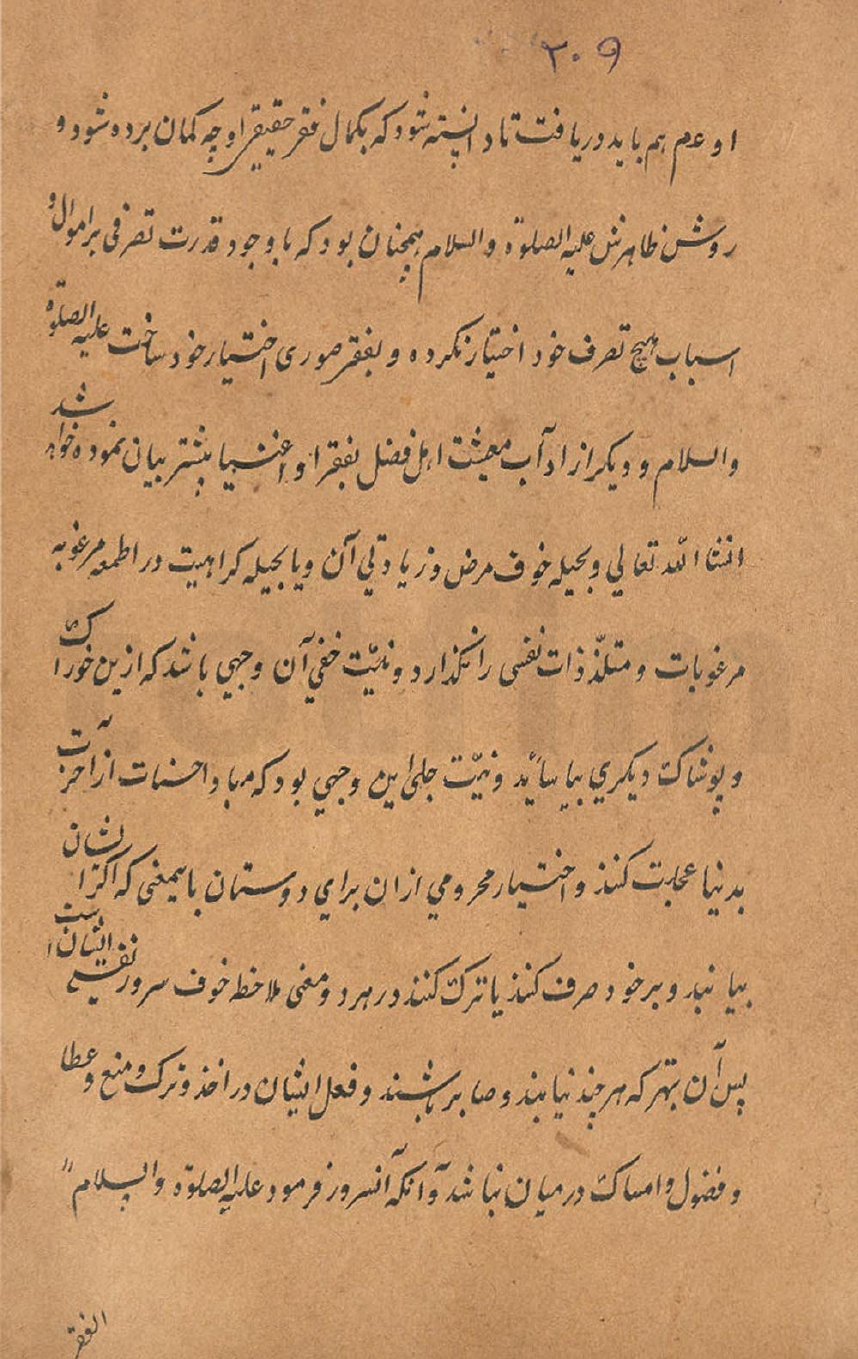 ۲۰۹
او عدم هم باید دریافت تا دانسته شود که بکمال فقر حقیقی او چه کمان برده شود و
روش ظاهرش علیه الصلوة والسلام همچنان بود که با وجود قدرت تصرفی بر اموال و
اسباب هیچ تصرف خود اختیار نکرده و بفقر صوری اختیار خود ساخت علیه الصلوة
والسلام و دیکر از آداب معیشت اهل فضل بفقرا و اغنیا بیشتر بیان نموده خواهد شد
انشا الله تعالی و بحیله خوف مرض و زیادتی آن و یا بحیله کراهیت در اطمعه مرغوبه
مرغوبات و متلذذات نفسی را نکذارد و نیت خفی آن وجهی باشد که ازین خوراک
و پوشاک دیکری بیاساید و نیت جلی این وجهی بود که مبادا حسنات از آخرت
بدنیا عجلت کنند و اختیار محرومی ازان برای دوستان باینمعنی که اکر ایشان
بیابند و بر خود صرف کنند یا ترک کنند در هر دو معنی ملاحظه خوف سرور نفس ایشان است
پس آن بهتر که هر چند نیابند و صابر باشند و فعل ایشان در اخذ و ترک و منع و عطا
و فضول و امساک درمیان نباشد و آنکه آنسرور فرمود علیه الصلوة والسلام
الفقر